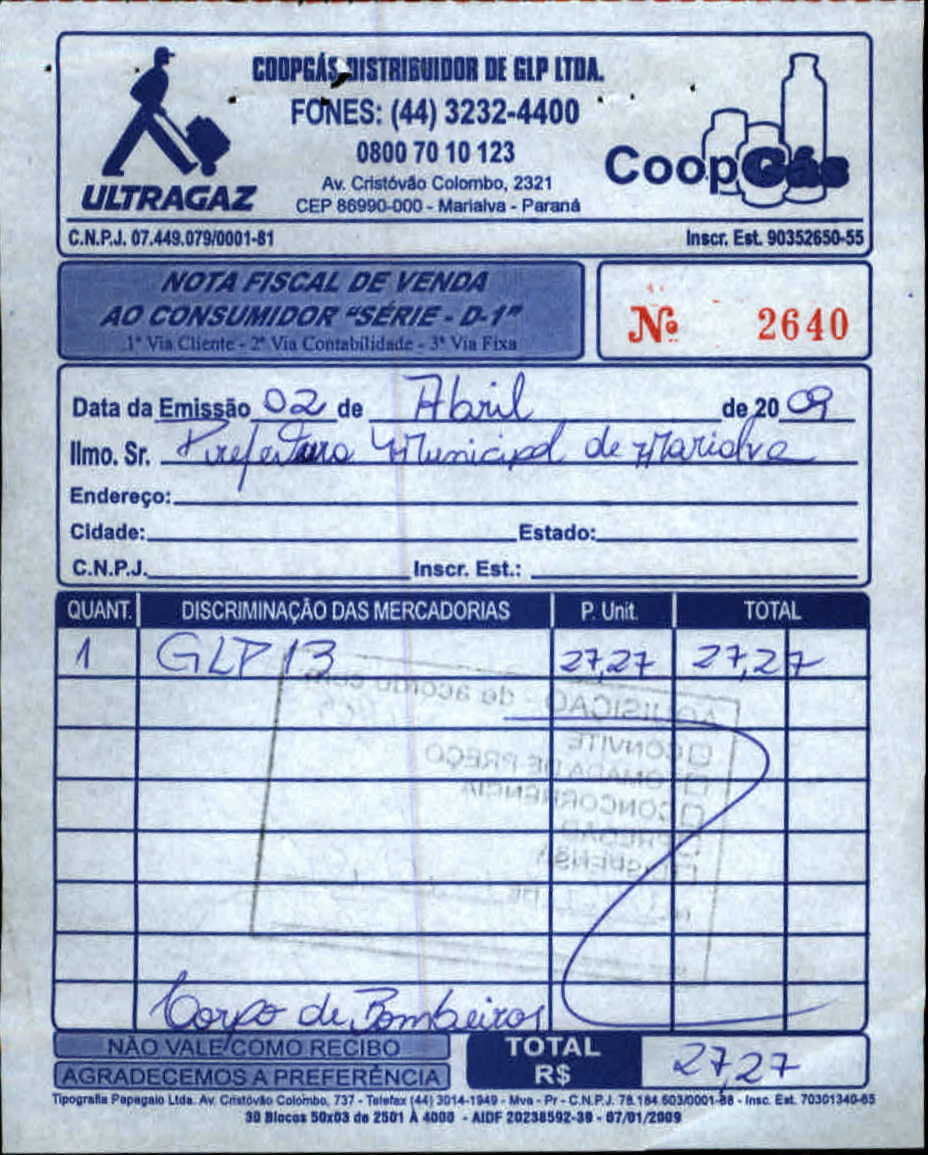 COOPGÁS DISTRIBUIDOR DE GLP LTDA.
FONES: (44) 3232-4400
0800 70 10 123
Av. Cristóvão Colombo, 2321
CEP 86990-000 - Marialva - Paraná
ULTRAGAZ
CoopGás
C.N.P.J. 07.449.079/0001-81 Inscr. Est. 90352650-55
NOTA FISCAL DE VENDA
AO CONSUMIDOR "SÉRIE - D-1"
1ª Via Cliente - 2ª Via Contabilidade - 3ª Via Fixa
Nº 2640
Data da Emissão 02 de Abril de 2009
Ilmo. Sr. Prefeitura Municipal de Marialva
Endereço:
Cidade: Estado:
C.N.P.J. Inscr. Est.:
QUANT. DISCRIMINAÇÃO DAS MERCADORIAS P. Unit. TOTAL
1 GLP 13 27,27 27,27
AQUISIÇÃO - de acordo com
CONVITE
TOMADA DE PREÇO
CONCORRÊNCIA
PREGÃO
DISPENSA
Corpo de Bombeiros
NÃO VALE COMO RECIBO
AGRADECEMOS A PREFERÊNCIA
TOTAL R$ 27,27
Tipografia Papagaio Ltda. Av. Cristóvão Colombo, 737 - Telefax (44) 3014-1949 - Mva - Pr - C.N.P.J. 78.184.603/0001-88 - Insc. Est. 70301340-65
30 Blocos 50x03 de 2501 À 4000 - AIDF 20238592-39 - 07/01/2009